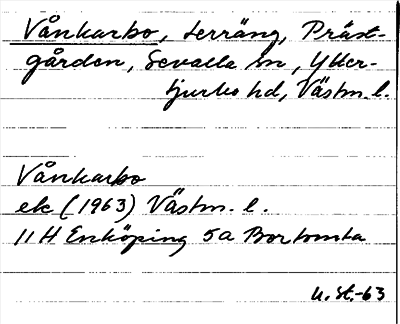 Vånkarbo, terräng, Präst-
gården, Sevalla sn, Ytter-
tjurbo hd, Västm. l.
Vånkarbo
ek (1963) Västm. l.
11 H Enköping 5a Bortomta
U. St.-63